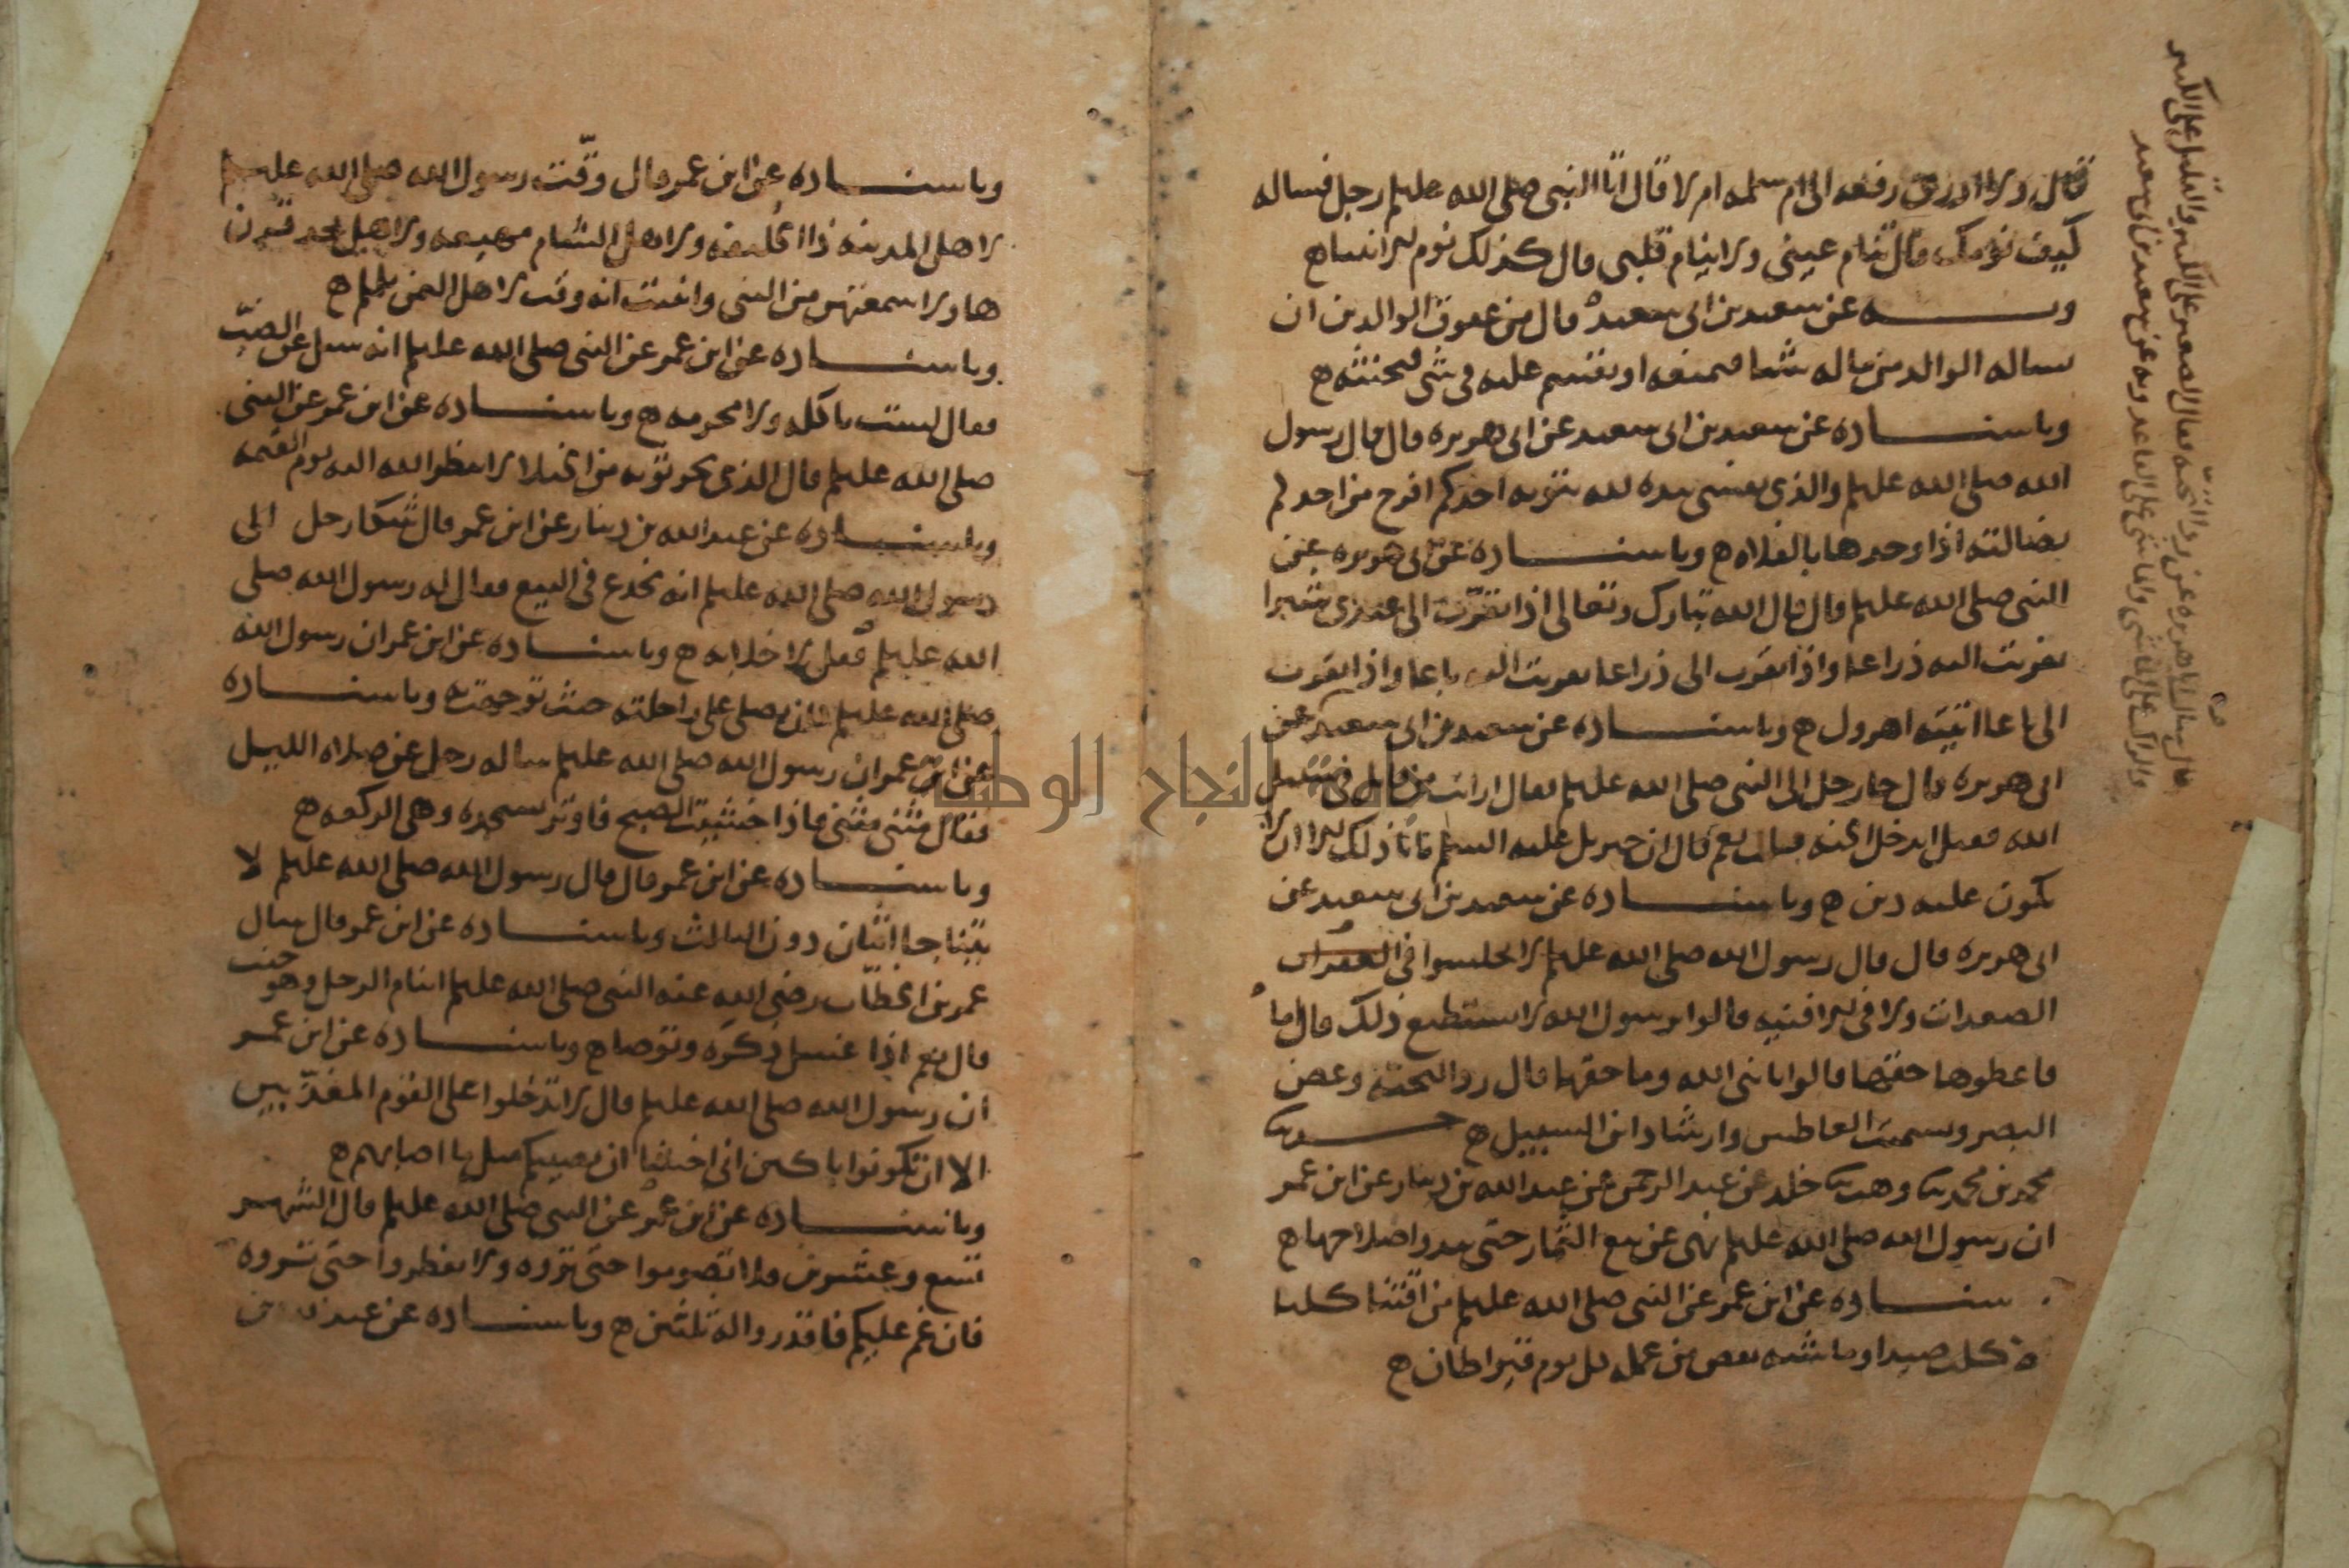 قال ولا ادري رفعه الى ام سلمه ام لا قال اتا النبي صلى الله عليه وسلم رجل فساله
كيف نومك قال تنام عيني ولا ينام قلبي قال كذلك نوم الانبيا ه
وبه عن سعيد بن ابي سعيد قال من عقوق الوالدين ان
يساله الوالد من ماله شيا فيمنعه او يقسم عليه في شي فيحنثه ه
وباسناده عن سعيد بن ابي سعيد عن ابي هريره قال قال رسول
الله صلى الله عليه وسلم والذي نفسي بيده لله بتوبه احدكم افرح من احدكم
بضالته اذا وجدها بالفلاه ه وباسناده عن ابي هريره عن
النبي صلى الله عليه وسلم قال قال الله تبارك وتعالى اذا تقرب الي عبدي شبرا
تقربت اليه ذراعا واذا تقرب الي ذراعا تقربت اليه باعا واذا تقرب
الي باعا اتيته اهرول ه وباسناده عن سعيد بن ابي سعيد عن
ابي هريره قال جا رجل الى النبي صلى الله عليه وسلم فقال ارايت من قاتل في سبيل
الله فقتل ايدخل الجنه قال نعم قال ان جبريل عليه السلم ذلك الا ان
يكون عليه دين ه وباسناده عن سعيد بن ابي سعيد عن
ابي هريره قال قال رسول الله صلى الله عليه وسلم لا تجلسوا في
الصعدات ولا في الافنيه قالوا يرسول الله لا نستطيع ذلك قال اما
فاعطوها حقها قالوا يا نبي الله وما حقها قال رد التحيه وغض
البصر وتسميت العاطس وارشاد ابن السبيل ه حدثنا
محمد بن محمد ثنا وهب ثنا خلد عن عبد الرحمن عن عبد الله بن دينار عن ابن عمر
ان رسول الله صلى الله عليه وسلم نهى عن بيع الثمار حتى يبدوا صلاحها ه
وباسناده عن ابن عمر عن النبي صلى الله عليه وسلم من اقتنا كلبا
كلب صيد او ماشيه نقص من عمله كل يوم قيراطان ه
قال سال ابا هريره عن رد التحيه فقال الصغير على الكبير والقليل على الكثير
وبه عن سعيد بن ابي سعيد
والراكب على الماشي والماشي على القاعد
وباسناده عن ابن عمر قال وقت رسول الله صلى الله عليه وسلم
لاهل المدينه ذا الحليفه ولاهل الشام مهيعه ولاهل نجد قرن
ها ولا سمعتهن من النبي وانبئت انه وقت لاهل اليمن يلملم ه
وباسناده عن ابن عمر عن النبي صلى الله عليه وسلم انه سل عن الضب
فقال لست باكله ولا محرمه ه وباسناده عن ابن عمر عن النبي
صلى الله عليه وسلم قال الذي يجر ثوبه من الخيلا لا ينظر الله اليه يوم القيمه
وباسناده عن عبد الله بن دينار عن ابن عمر قال شكا رجل الى
رسول الله صلى الله عليه وسلم انه يخدع في البيع فقال له رسول الله صلى
الله عليه وسلم فقل لا خلابه ه وباسناده عن ابن عمر ان رسول الله
صلى الله عليه وسلم كان يصلي على راحلته حيث توجهت به وباسناده
عن ابن عمر ان رسول الله صلى الله عليه وسلم ساله رجل عن صلاه الليل
فقال مثنى مثنى فاذا خشيت الصبح فاوتر بسجده وهي الركعه ه
وباسناده عن ابن عمر قال قال رسول الله صلى الله عليه وسلم لا
يتناجا اثنان دون الثالث وباسناده عن ابن عمر قال سال
عمر بن الخطاب رضي الله عنه النبي صلى الله عليه وسلم اينام الرجل وهو جنب
قال نعم اذا غسل ذكره وتوضا ه وباسناده عن ابن عمر
ان رسول الله صلى الله عليه وسلم قال لا تدخلوا على القوم المعذبين
الا ان تكونوا باكين اني اخشا ان يصيبكم مثل ما اصابهم ه
وباسناده عن ابن عمر عن النبي صلى الله عليه وسلم قال الشهر
تسع وعشرون فلا تصوموا حتى تروه ولا تفطروا حتى تروه
فان غم عليكم فاقدروا له ثلثين ه وباسناده عن
جامعة النجاح الوطنية